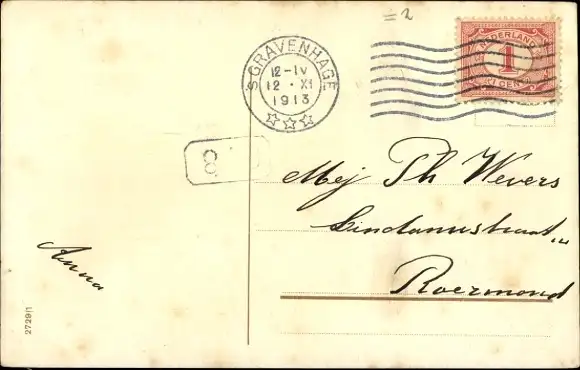 = 2
'SGRAVENHAGE
12-IV
12 · XI
1913
NEDERLAND
1
CENT
8
Mej Ph Wevers
Lindanusstraat
Roermond
Anna
2729/1